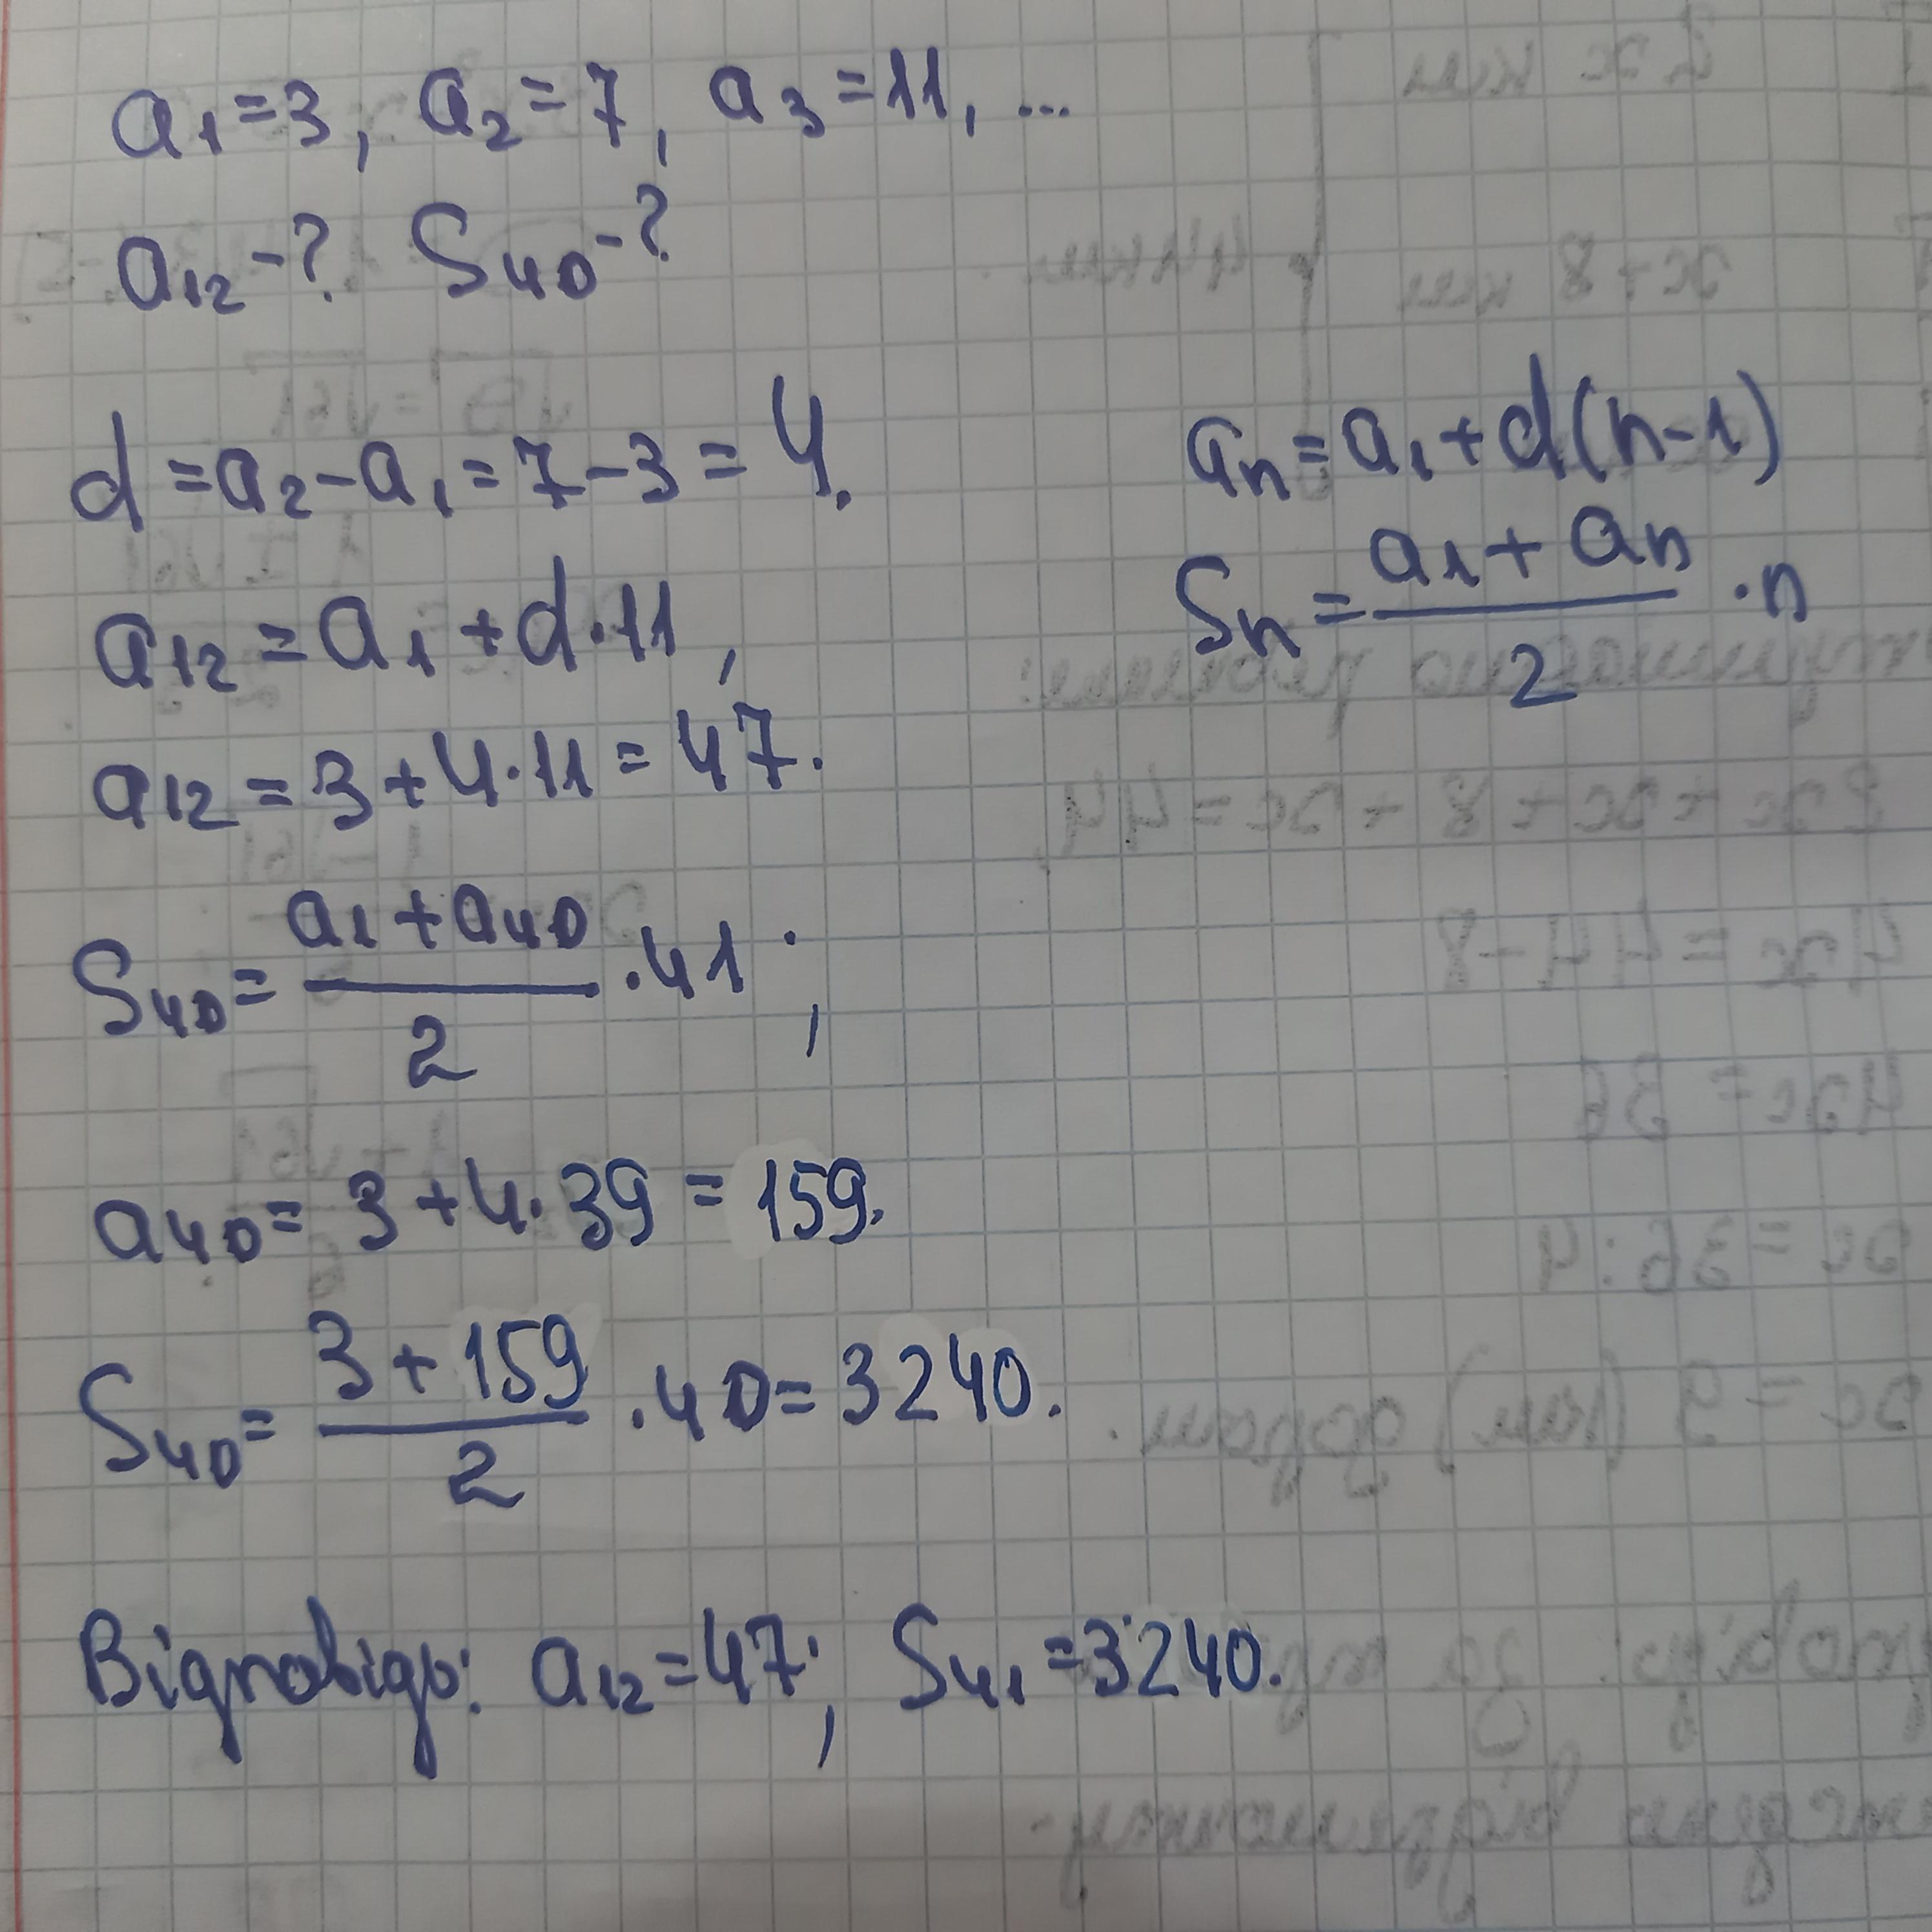 a₁=3, a₂=7, a₃=11, ...
a₁₂-? S₄₀-?
d=a₂-a₁=7-3=4.
aₙ=a₁+d(n-1)
Sₙ=(a₁+aₙ)/2·n
a₁₂=a₁+d·11,
a₁₂=3+4·11=47.
S₄₀=(a₁+a₄₀)/2·41;
a₄₀=3+4·39=159.
S₄₀=(3+159)/2·40=3240.
Відповідь: a₁₂=47; S₄₁=3240.